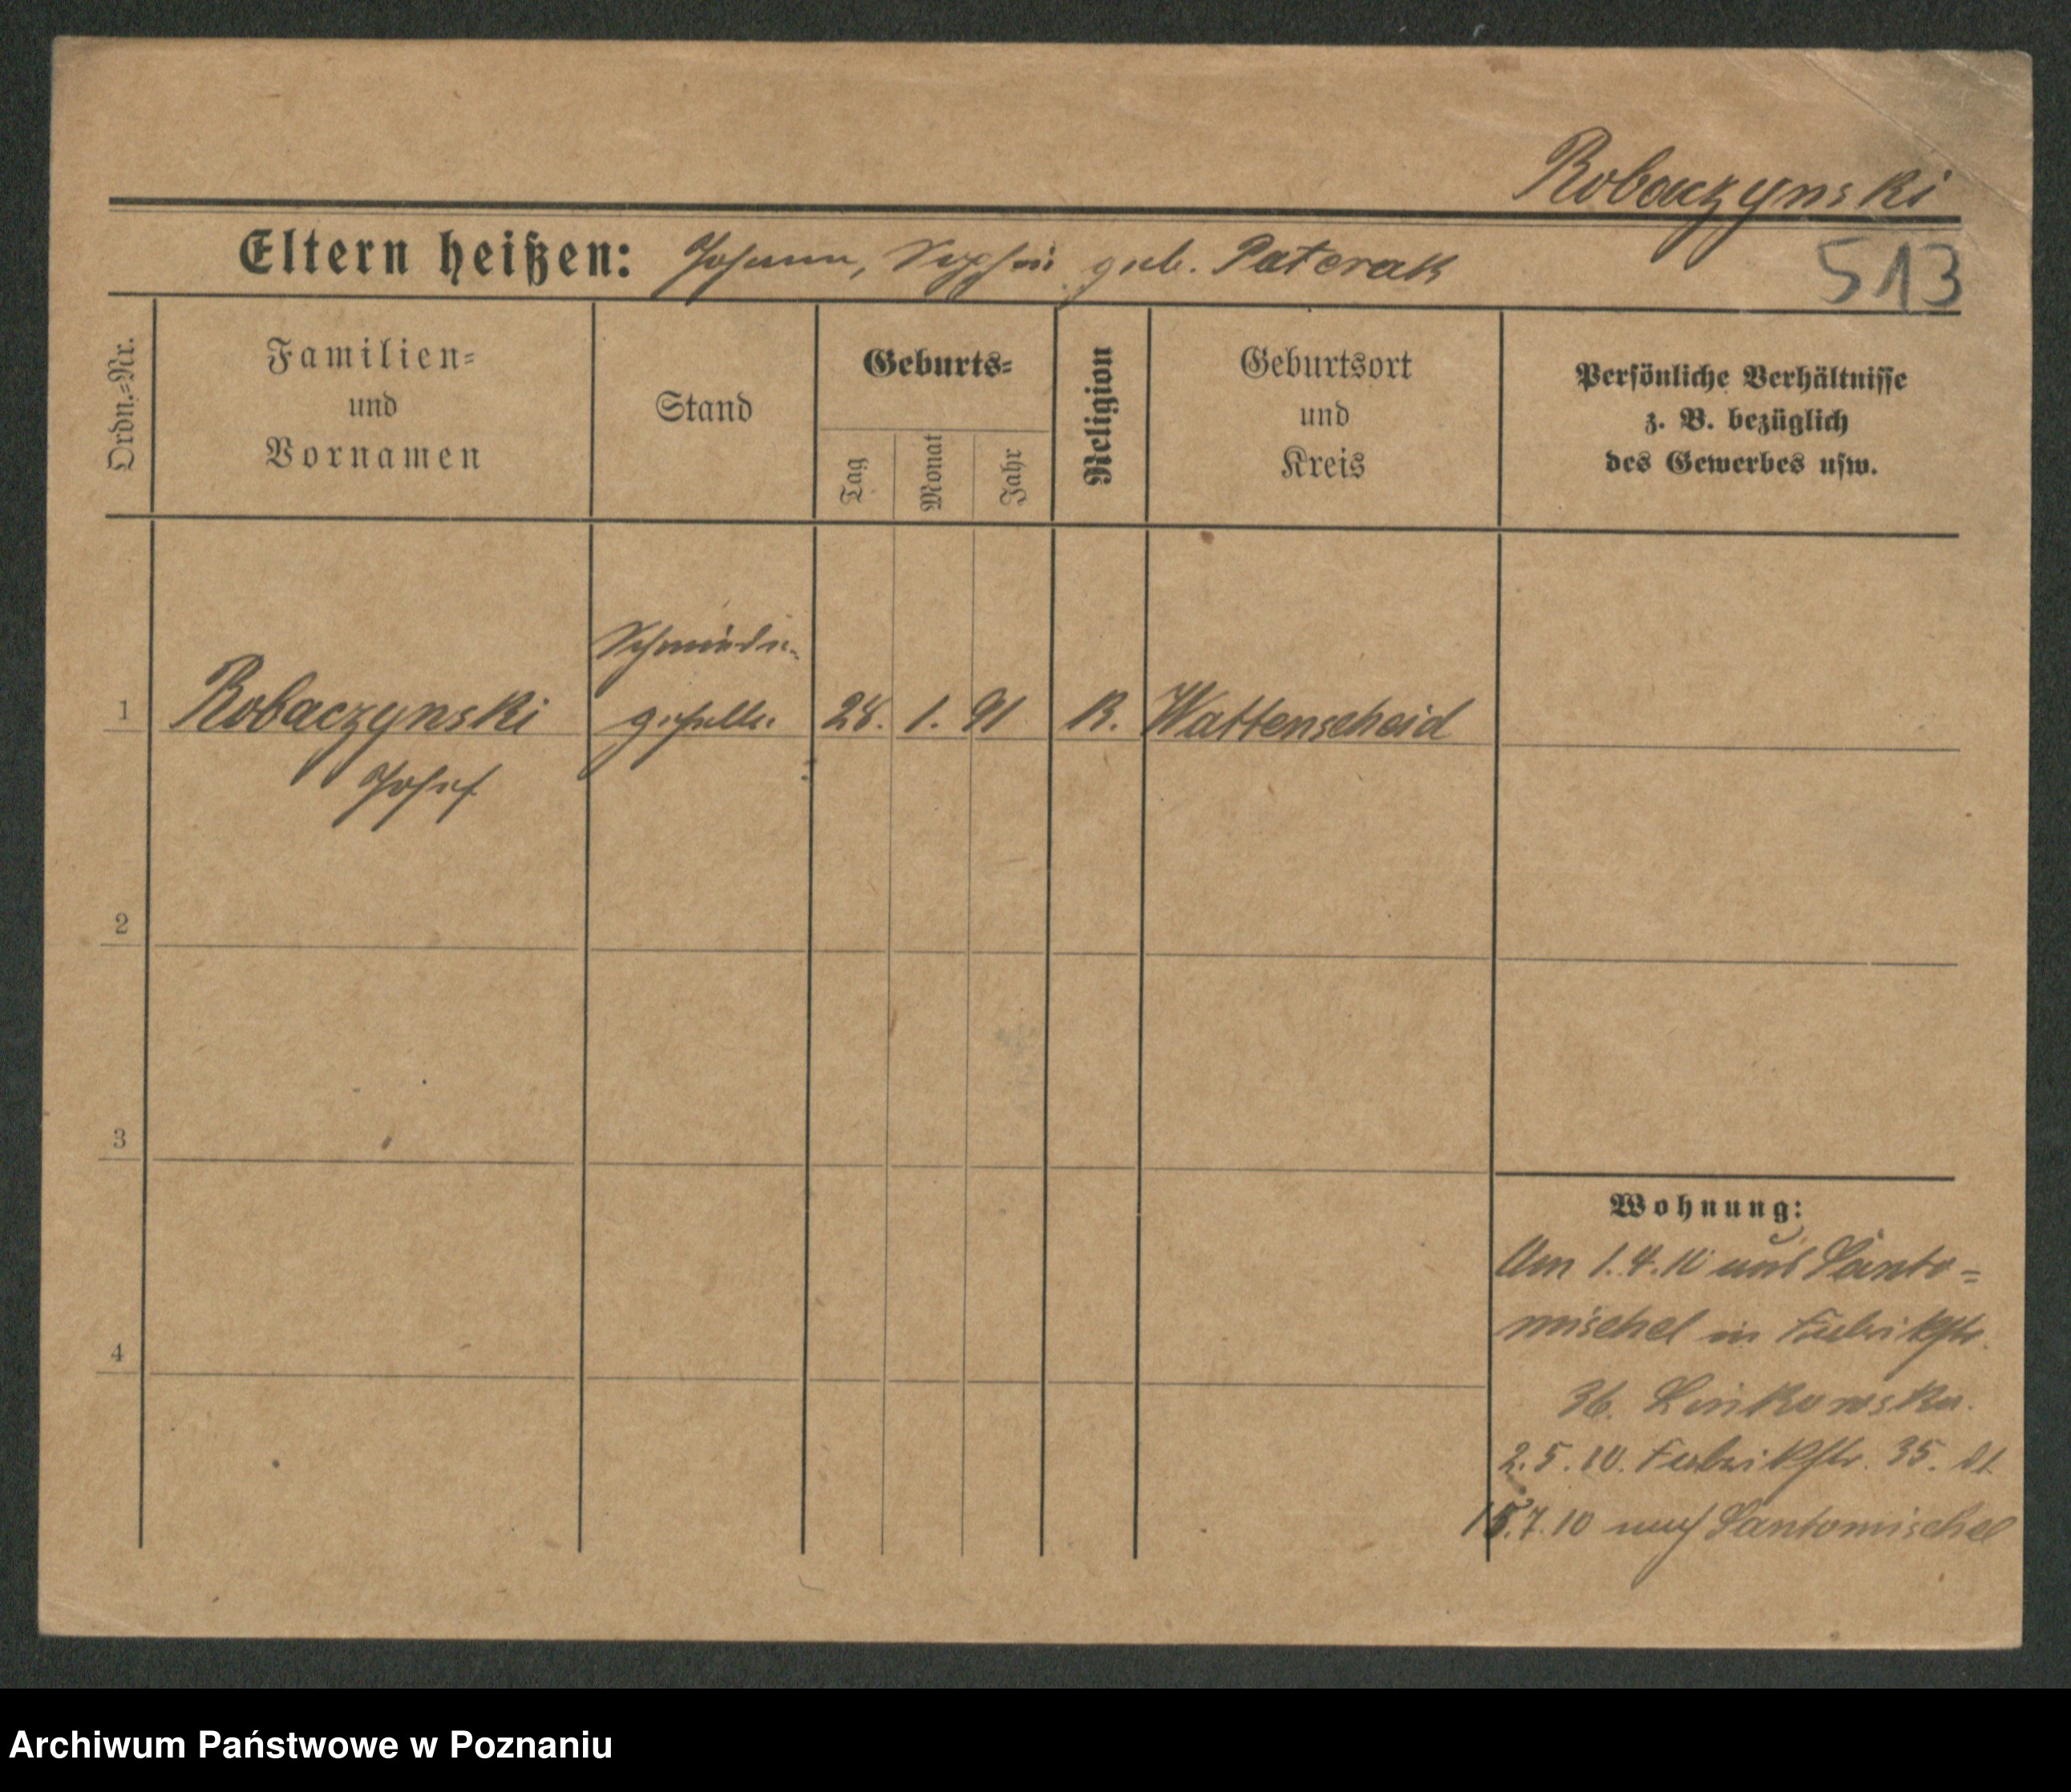 Robaczynski
Eltern heißen: Johann, Sophie geb. Paterak
513
Ordn.=Nr.
Familien=
und
Vornamen
Stand
Geburts=
Tag
Monat
Jahr
Religion
Geburtsort
und
Kreis
Persönliche Verhältnisse
z. B. bezüglich
des Gewerbes usw.
Schmiede-
1 Robaczynski geselle 28. 1. 91 K. Wattenscheid
Josef
2
3
4
Wohnung:
Am 1.4.10 aus Santo=
mischel in Fabrikstr.
36. Linkowska.
2.5.10. Fabrikstr. 35.
15.7.10 nach Santomischel
Archiwum Państwowe w Poznaniu